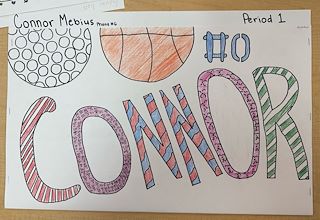 Connor Mebius
Period 1
#0
CONNOR